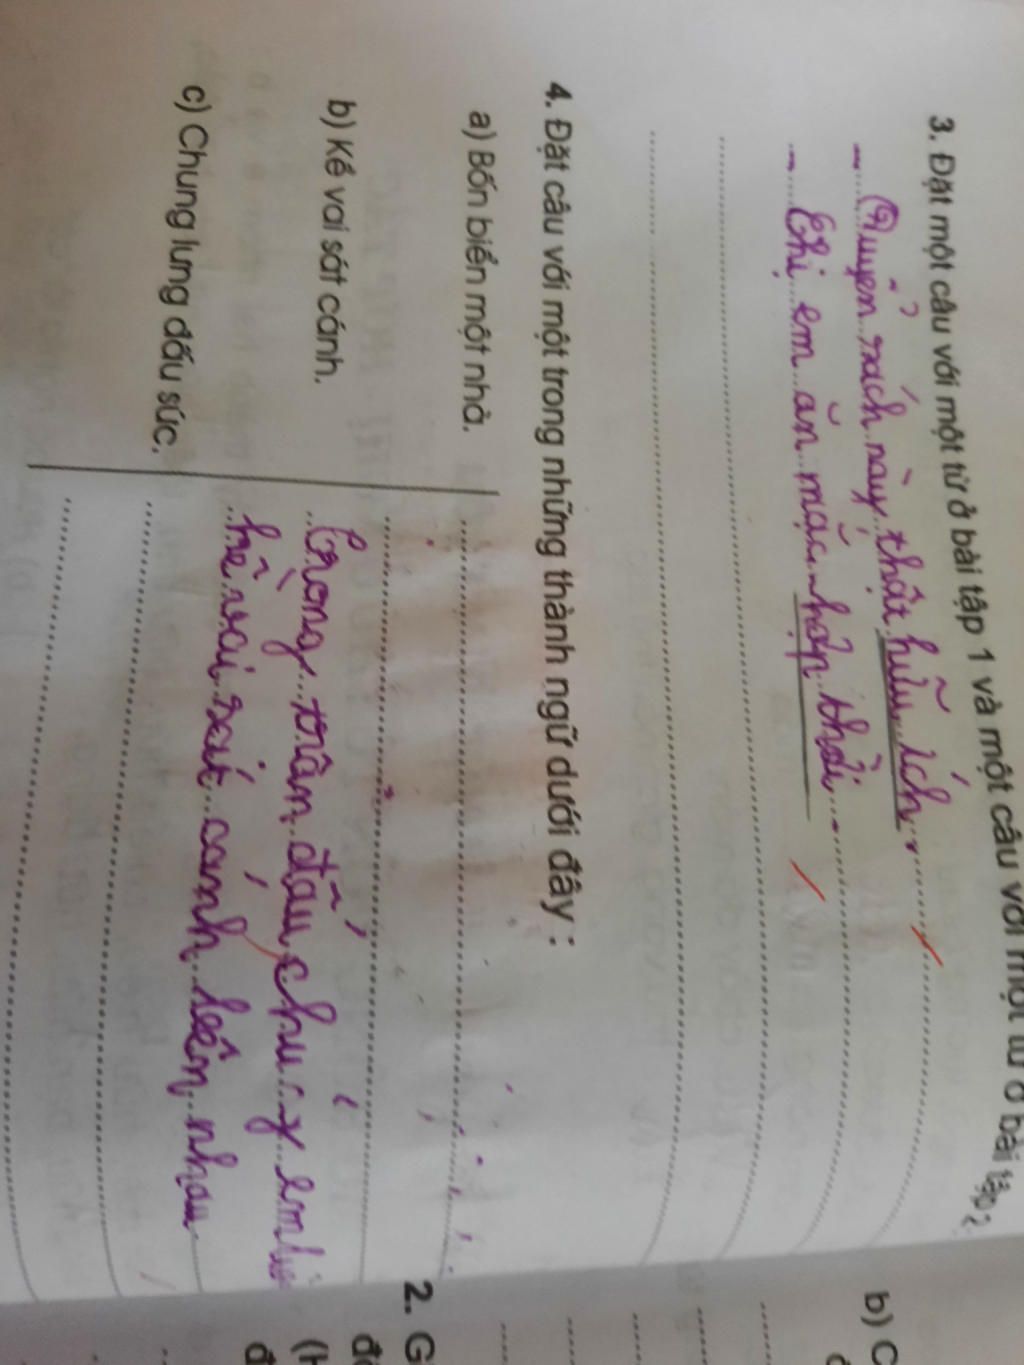 3. Đặt một câu với một từ ở bài tập 1 và một câu với một từ ở bài tập 2.
- Quyển sách này thật hữu ích.
- Chị em ăn mặc hợp thời
4. Đặt câu với một trong những thành ngữ dưới đây :
a) Bốn biển một nhà.
b) Kề vai sát cánh.
c) Chung lưng đấu sức.
Trong trận đấu chúng em
kề vai sát cánh bên nhau
b) C
2. G
(h
đ